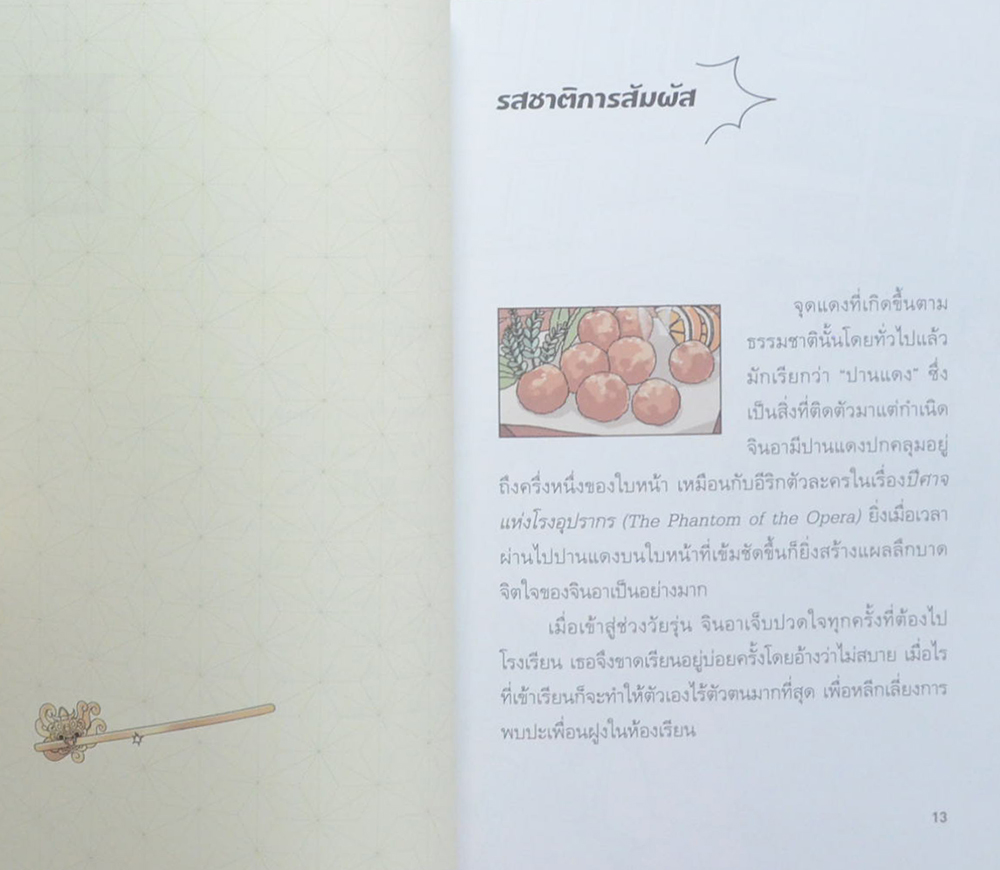 รสชาติการสัมผัส
จุดแดงที่เกิดขึ้นตาม
ธรรมชาตินั้นโดยทั่วไปแล้ว
มักเรียกว่า “ปานแดง” ซึ่ง
เป็นสิ่งที่ติดตัวมาแต่กำเนิด
จินอามีปานแดงปกคลุมอยู่
ถึงครึ่งหนึ่งของใบหน้า เหมือนกับอีริกตัวละครในเรื่องปีศาจ
แห่งโรงอุปรากร (The Phantom of the Opera) ยิ่งเมื่อเวลา
ผ่านไปปานแดงบนใบหน้าที่เข้มชัดขึ้นก็ยิ่งสร้างแผลลึกบาด
จิตใจของจินอาเป็นอย่างมาก
เมื่อเข้าสู่ช่วงวัยรุ่น จินอาเจ็บปวดใจทุกครั้งที่ต้องไป
โรงเรียน เธอจึงขาดเรียนอยู่บ่อยครั้งโดยอ้างว่าไม่สบาย เมื่อไร
ที่เข้าเรียนก็จะทำให้ตัวเองไร้ตัวตนมากที่สุด เพื่อหลีกเลี่ยงการ
พบปะเพื่อนฝูงในห้องเรียน
13